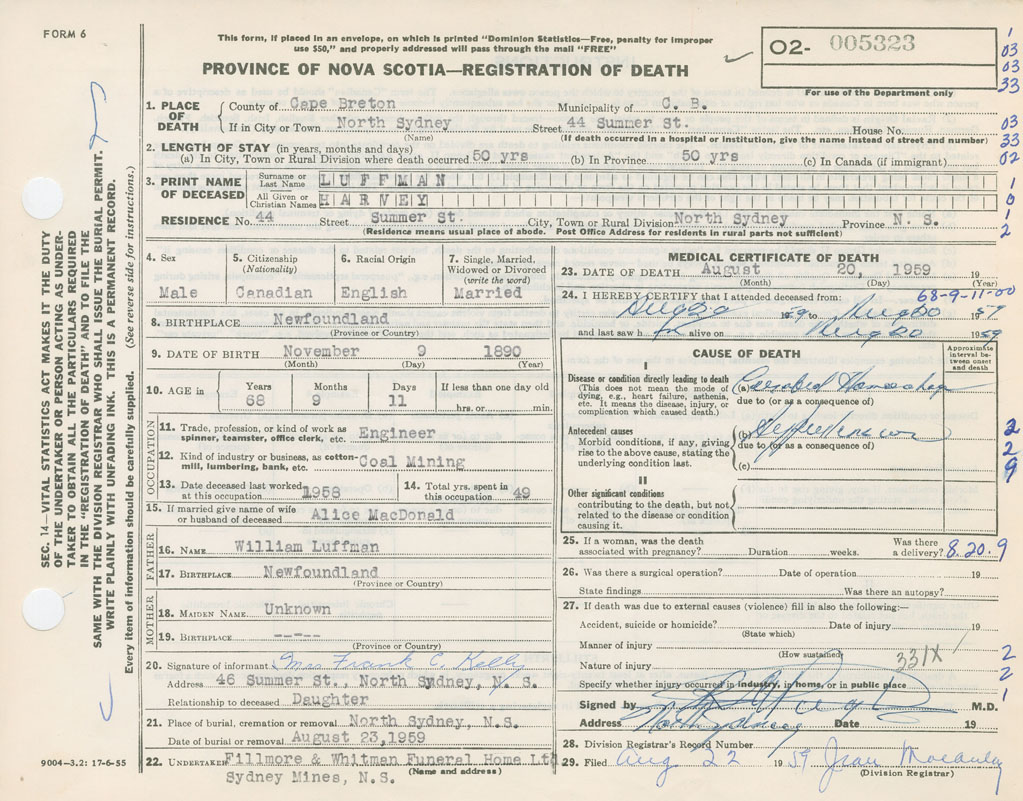 FORM 6
This form, if placed in an envelope, on which is printed "Dominion Statistics—Free, penalty for improper
use $50," and properly addressed will pass through the mail "FREE"
PROVINCE OF NOVA SCOTIA—REGISTRATION OF DEATH
02- 005323
For use of the Department only
1
03
03
33
03
33
02
1
0
1
2
SEC. 14—VITAL STATISTICS ACT MAKES IT THE DUTY
OF THE UNDERTAKER OR PERSON ACTING AS UNDER-
TAKER TO OBTAIN ALL THE PARTICULARS REQUIRED
IN THE "REGISTRATION OF DEATH" AND TO FILE THE
SAME WITH THE DIVISION REGISTRAR WHO SHALL ISSUE THE BURIAL PERMIT.
WRITE PLAINLY WITH UNFADING INK. THIS IS A PERMANENT RECORD.
Every item of information should be carefully supplied. (See reverse side for instructions.)
1. PLACE OF DEATH
County of Cape Breton Municipality of C. B.
If in City or Town North Sydney Street 44 Summer St. House No.
(Name) (If death occurred in a hospital or institution, give the name instead of street and number)
2. LENGTH OF STAY (in years, months and days)
(a) In City, Town or Rural Division where death occurred 50 yrs (b) In Province 50 yrs (c) In Canada (if immigrant)
3. PRINT NAME OF DECEASED
Surname or Last Name LUFFMAN
All Given or Christian Names HARVEY
RESIDENCE No. 44 Street Summer St. City, Town or Rural Division North Sydney Province N. S.
(Residence means usual place of abode. Post Office Address for residents in rural parts not sufficient)
4. Sex
Male
5. Citizenship (Nationality)
Canadian
6. Racial Origin
English
7. Single, Married, Widowed or Divorced (write the word)
Married
8. BIRTHPLACE Newfoundland
(Province or Country)
9. DATE OF BIRTH November 9 1890
(Month) (Day) (Year)
10. AGE in Years Months Days If less than one day old
68 9 11 hrs. or min.
OCCUPATION
11. Trade, profession, or kind of work as
spinner, teamster, office clerk, etc. Engineer
12. Kind of industry or business, as cotton-
mill, lumbering, bank, etc. Coal Mining
13. Date deceased last worked at this occupation 1958
14. Total yrs. spent in this occupation 49
15. If married give name of wife
or husband of deceased Alice MacDonald
FATHER
16. NAME William Luffman
17. BIRTHPLACE Newfoundland
(Province or Country)
MOTHER
18. MAIDEN NAME Unknown
19. BIRTHPLACE -----
(Province or Country)
20. Signature of informant Mrs Frank C. Kelly
Address 46 Summer St., North Sydney, N. S.
Relationship to deceased Daughter
21. Place of burial, cremation or removal North Sydney, N.S.
Date of burial or removal August 23,1959
22. UNDERTAKER Fillmore & Whitman Funeral Home Ltd
Sydney Mines, N.S. (Name and address)
9004-3.2: 17-6-55
MEDICAL CERTIFICATE OF DEATH
23. DATE OF DEATH August 20, 1959 19
(Month) (Day) (Year)
68-9-11-00
24. I HEREBY CERTIFY that I attended deceased from:
Aug 20 1959 to Aug 20 1959
and last saw h alive on Aug 20 1959
CAUSE OF DEATH
Approximate interval be-tween onset and death
I
Disease or condition directly leading to death
(This does not mean the mode of
dying, e.g., heart failure, asthenia,
etc. It means the disease, injury, or
complication which caused death.)
(a) Cerebral Hemorrhage
due to (or as a consequence of)
Antecedent causes
Morbid conditions, if any, giving
rise to the above cause, stating the
underlying condition last.
(b) Hypertension
due to (or as a consequence of)
(c)
2
2
9
II
Other significant conditions
contributing to the death, but not
related to the disease or condition
causing it.
25. If a woman, was the death
associated with pregnancy? Duration weeks. Was there a delivery?
8.20.9
26. Was there a surgical operation? Date of operation 19
State findings Was there an autopsy?
27. If death was due to external causes (violence) fill in also the following:—
Accident, suicide or homicide? Date of injury 19
(State which)
Manner of injury
(How sustained)
331X
Nature of injury
Specify whether injury occurred in industry, in home, or in public place
2
2
1
Signed by M.D.
Address North Sydney Date 19
28. Division Registrar's Record Number
29. Filed Aug 22 1959 Jean
(Division Registrar)